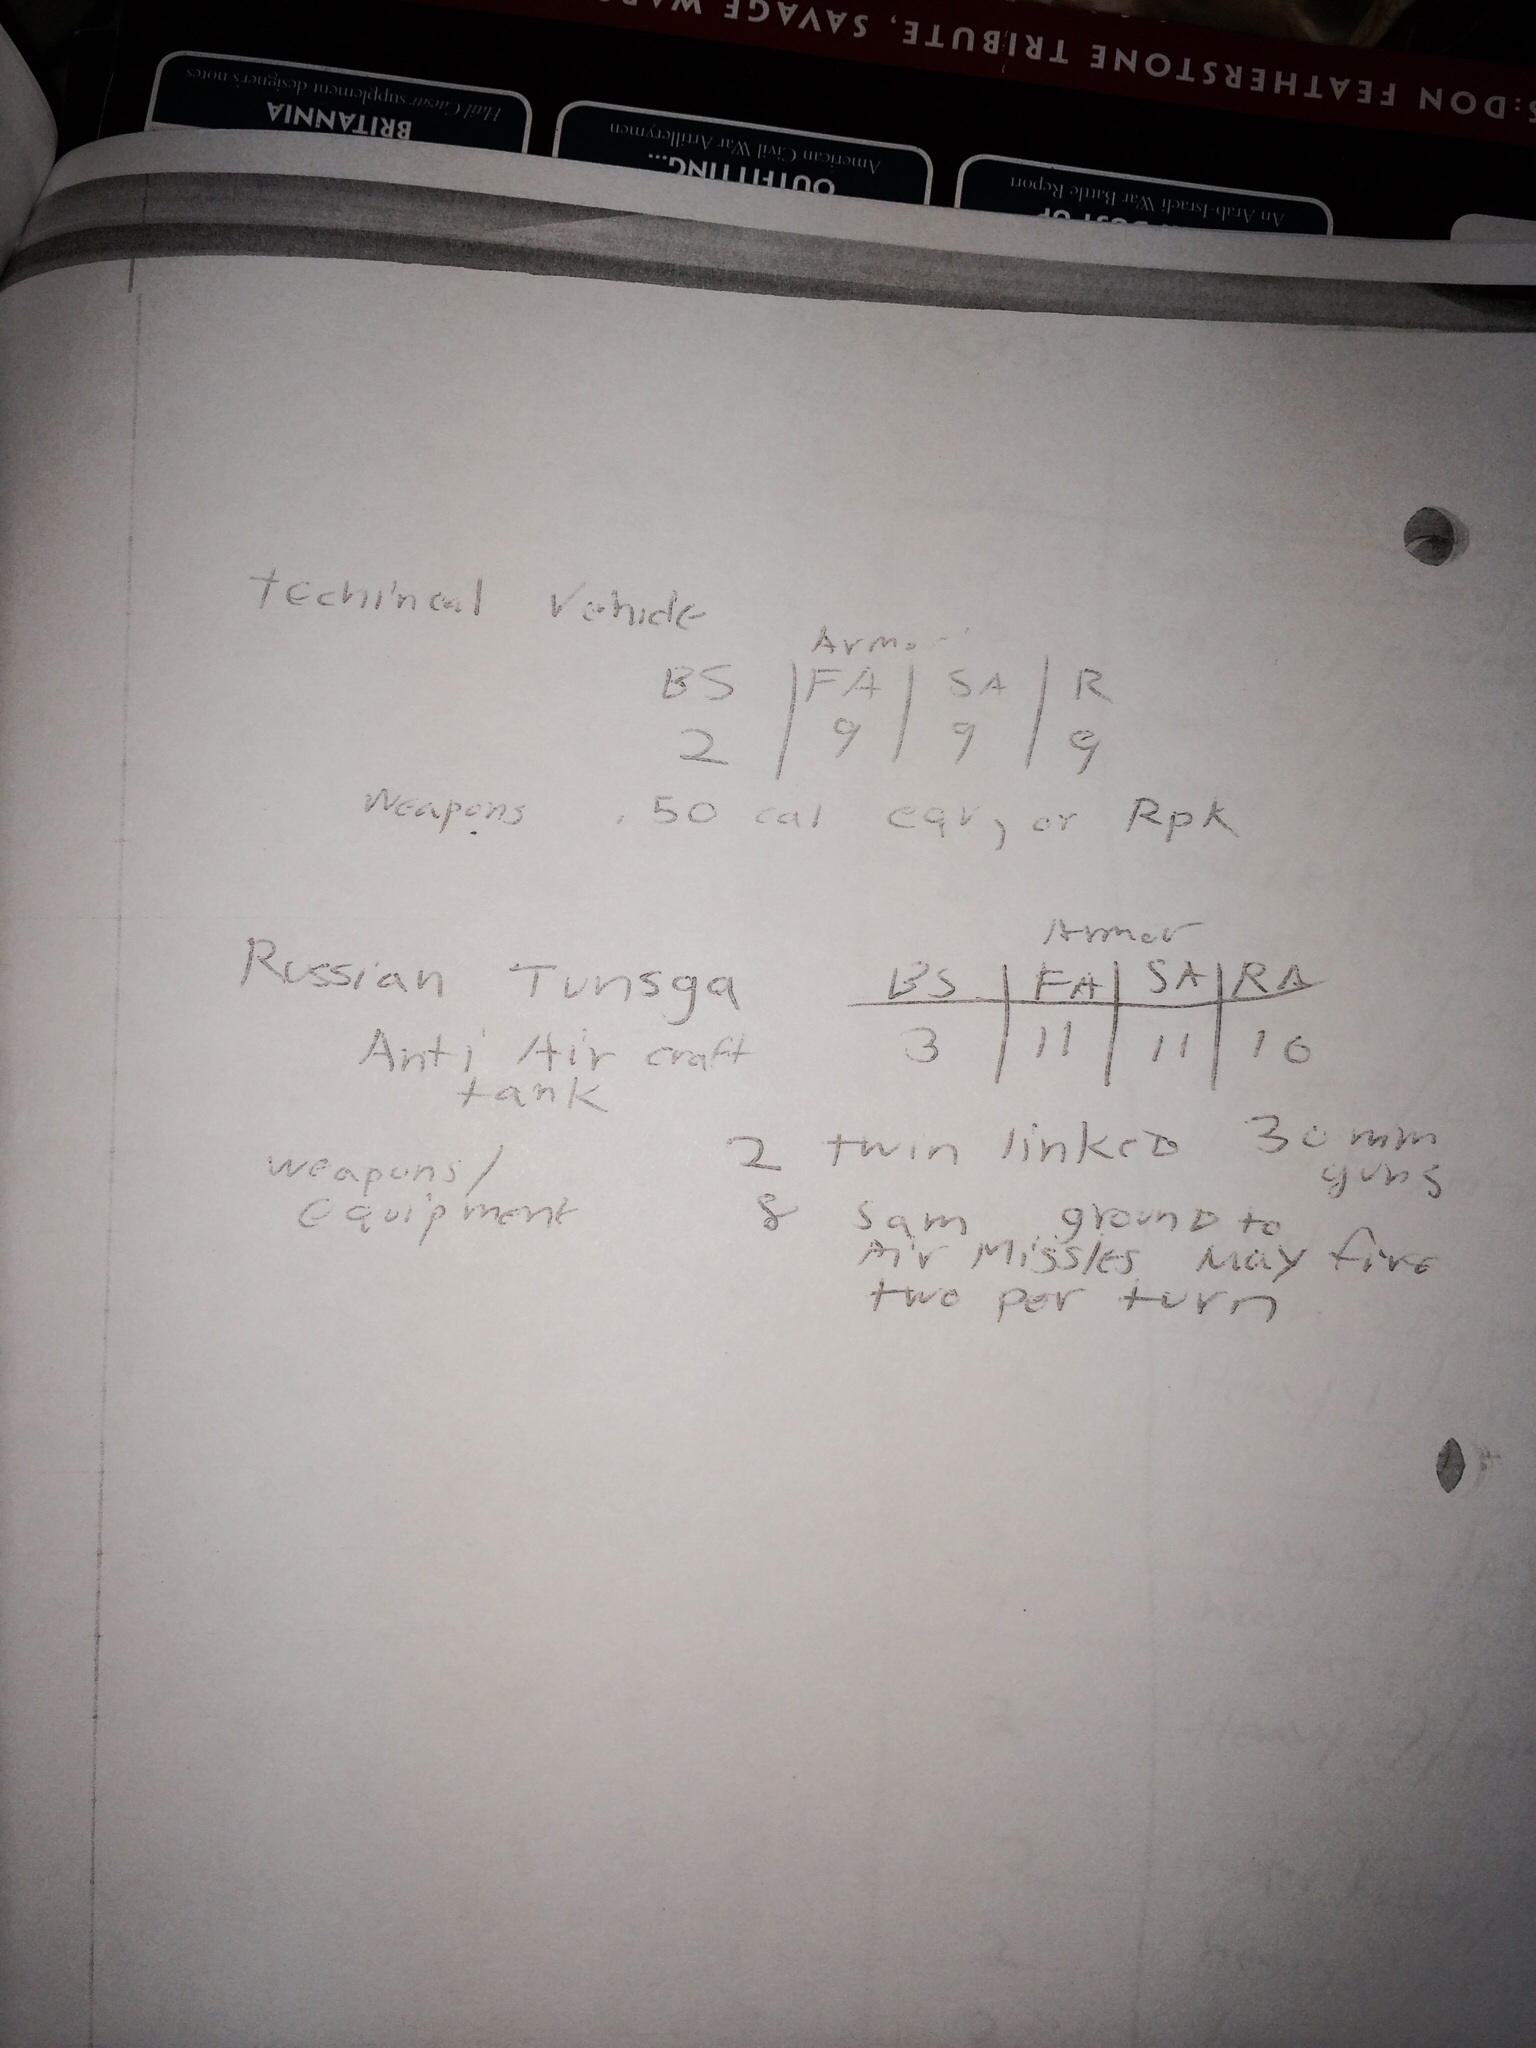 S: DON FEATHERSTONE TRIBUTE, SAVAGE
An Arab-Israeli War Battle Report
OUTFITTING...
American Civil War Artillerymen
BRITANNIA
Hail Caesar supplement designer's notes
Techincal Vehicle
Armor
BS | FA | SA | R
2 | 9 | 9 | 9
Weapons .50 cal eqv, or Rpk
Armor
Russian Tunsga BS | FA | SA | RA
Anti Air craft 3 | 11 | 11 | 10
tank
2 twin linked 30 mm
weapons/ guns
equipment 8 Sam ground to
Air Missles May fire
two per turn